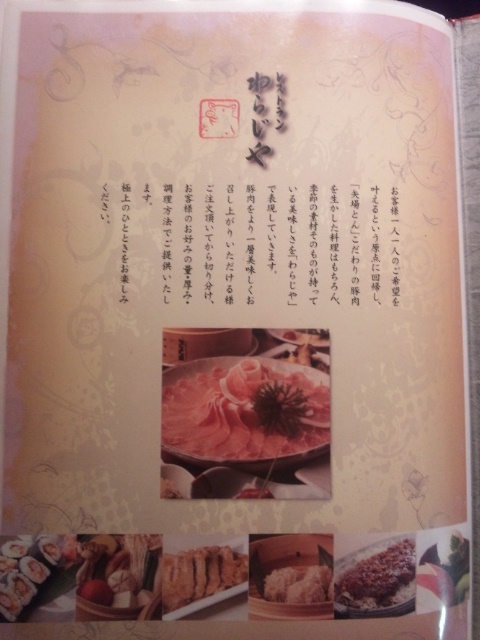 レストラン
わらじや
お客様一人一人のご希望を
叶えるという原点に回帰し、
「矢場とん」こだわりの豚肉
を生かした料理はもちろん、
季節の素材そのものが持って
いる美味しさを「わらじや」
で表現していきます。
豚肉をより一層美味しくお
召し上がりいただける様
ご注文頂いてから切り分け、
お客様のお好みの量・厚み・
調理方法でご提供いたし
ます。
極上のひとときをお楽しみ
ください。